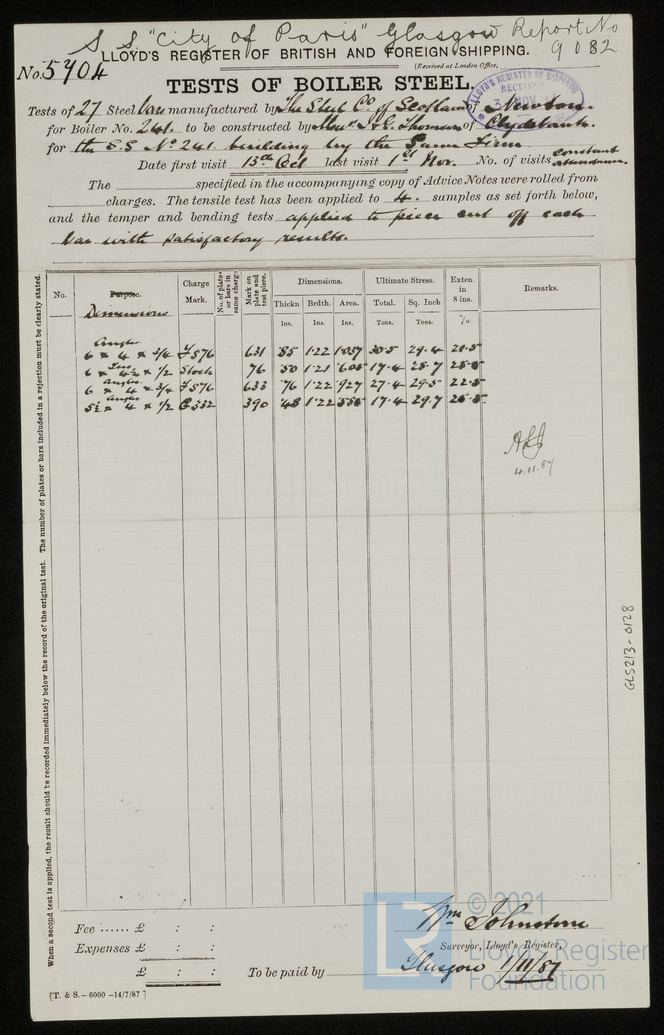 S.S. "City of Paris" Glasgow Report No 9082
LLOYD'S REGISTER OF BRITISH AND FOREIGN SHIPPING.
No. 5704
(Received at London Office,
LLOYD'S REGISTER OF SHIPPING
RECEIVED
3 NOV
TESTS OF BOILER STEEL.
Tests of 27 Steel bars manufactured by The Steel Co. of Scotland of Newton.
for Boiler No. 241. to be constructed by Messrs J & G Thomson of Clydebank.
for the S.S No 241 building by the Same Firm.
Date first visit 13th Oct last visit 1st Nov. No. of visits constant attendance.
The specified in the accompanying copy of Advice Notes were rolled from
charges. The tensile test has been applied to 4. samples as set forth below,
and the temper and bending tests applied to piece cut off each
bar with satisfactory results.
When a second test is applied, the result should be recorded immediately below the record of the original test. The number of plates or bars included in a rejection must be clearly stated.
No. Purpose. Charge Mark. No. of plates or bars in same charge Mark on plate and test piece. Dimensions. Ultimate Stress. Exten. in 8 ins. Remarks.
Dimensions
Thickn Brdth. Area. Total. Sq. Inch
Ins. Ins. Ins. Tons. Tons. %
Angles
6 x 4 x 3/4 F576 631 .85 1.22 1.037 30.5 29.4 20.5
6 x 4½ x 1/2 Stock 76 .50 1.21 .605 17.4 28.7 25.5
Angles
6 x 4 x 3/4 F576 633 .76 1.22 .927 27.4 29.5 22.5
Angles
5½ x 4 x 1/2 C332 390 .48 1.22 .585 17.4 29.7 25.5
4.11.87
GLS213-0128
Fee ...... £ : :
Expenses £ : :
£ : :
To be paid by
Wm Johnstone
Surveyor, Lloyd's Register,
Glasgow 1/11/87
[T. & S.—6000—14/7/87]
© 2021
LR
Lloyd's Register
Foundation